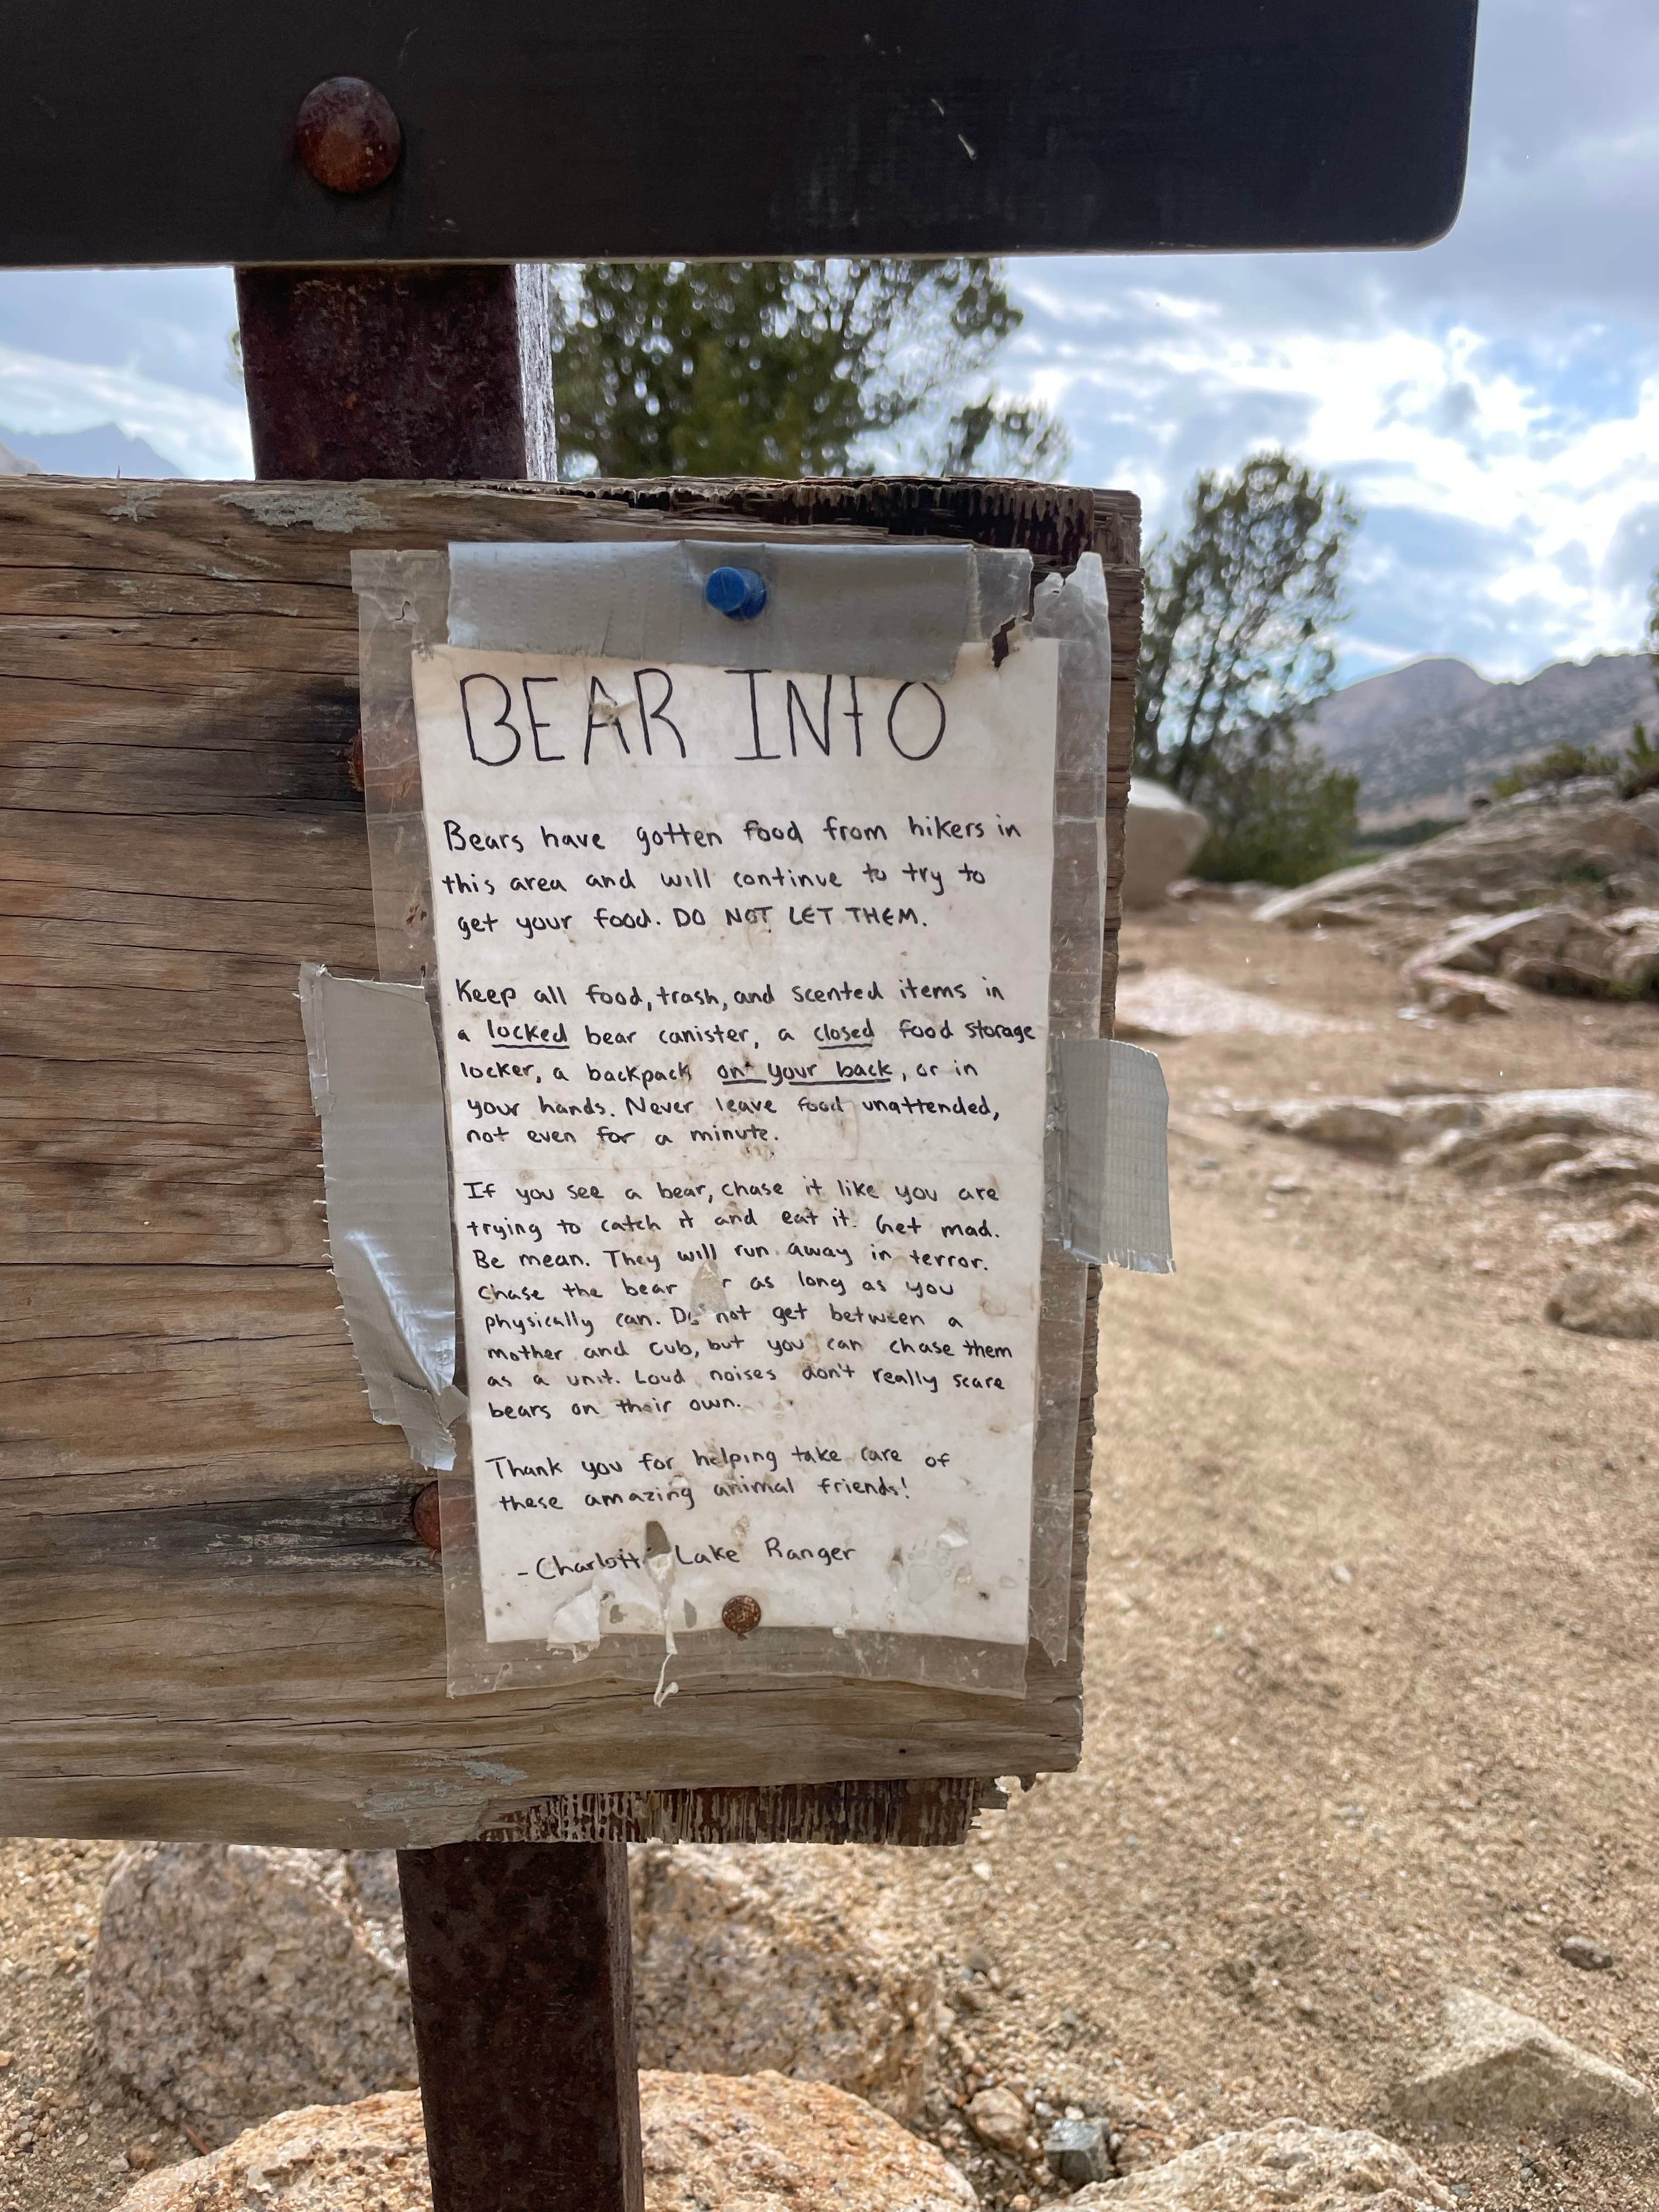 BEAR INFO
Bears have gotten food from hikers in
this area and will continue to try to
get your food. DO NOT LET THEM.
Keep all food, trash, and scented items in
a locked bear canister, a closed food storage
locker, a backpack on your back, or in
your hands. Never leave food unattended,
not even for a minute.
If you see a bear, chase it like you are
trying to catch it and eat it. Get mad.
Be mean. They will run away in terror.
Chase the bear as long as you
physically can. Do not get between a
mother and cub, but you can chase them
as a unit. Loud noises don't really scare
bears on their own.
Thank you for helping take care of
these amazing animal friends!
- Charlotte Lake Ranger